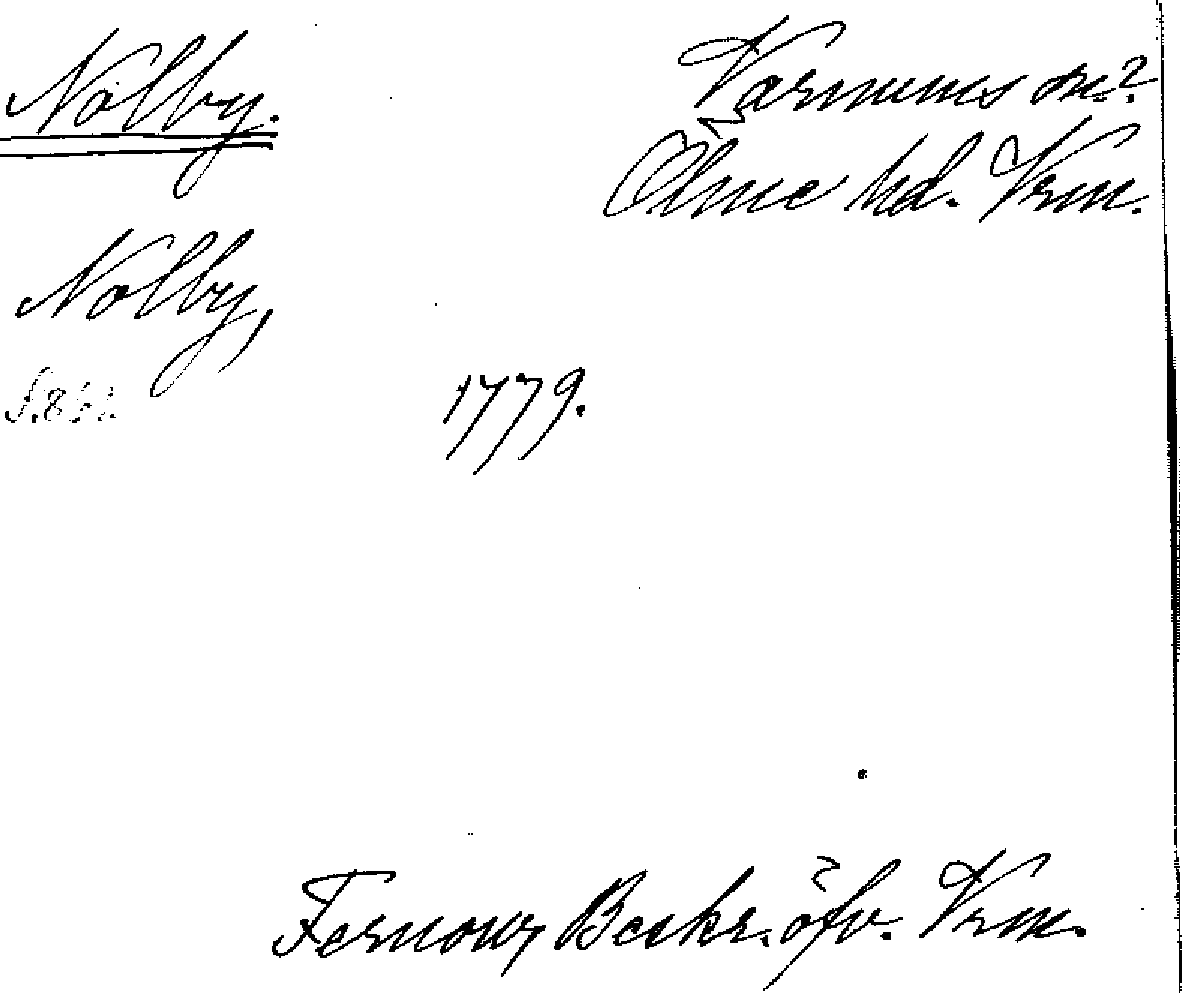 Nolby.
Varnums sn.?
Ölme hd. Vrm.
Nolby,
1779.
Fernow, Beskr. öfv. Vrm.